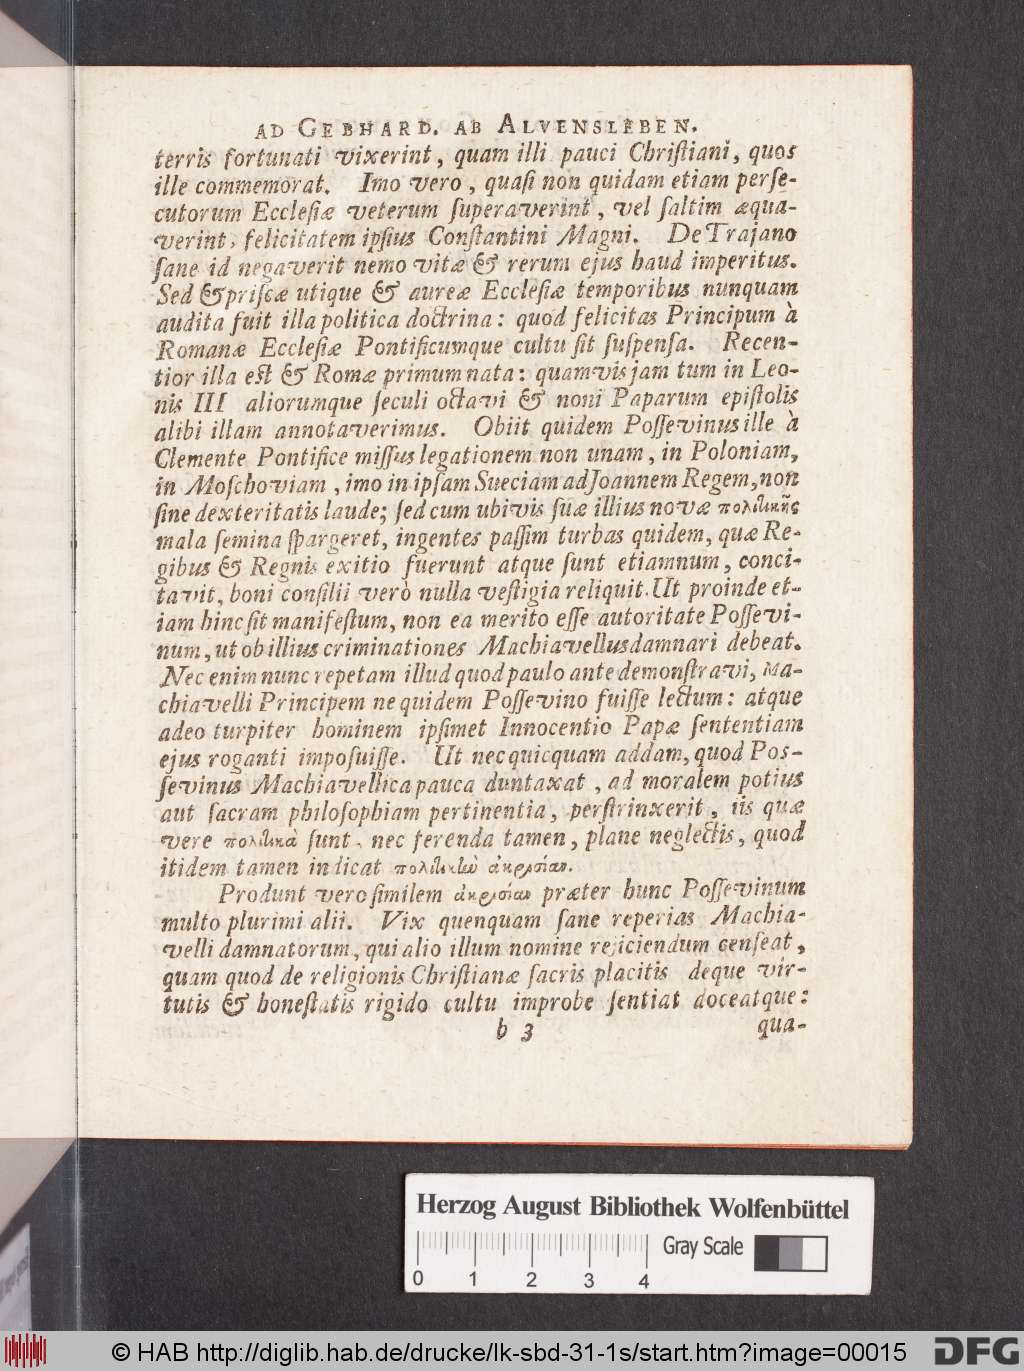 AD GEBHARD. AB ALVENSLEBEN.
terris fortunati vixerint, quam illi pauci Chriſtiani, quos
ille commemorat. Imo vero, quaſi non quidam etiam perſe-
cutorum Eccleſiæ veterum ſuperaverint, vel ſaltim æqua-
verint, felicitatem ipſius Conſtantini Magni. De Trajano
ſane id negaverit nemo vitæ & rerum ejus haud imperitus.
Sed & priſcæ utique & aureæ Eccleſiæ temporibus nunquam
audita fuit illa politica doctrina: quod felicitas Principum à
Romanæ Eccleſiæ Pontificumque cultu ſit ſuſpenſa. Recen-
tior illa eſt & Romæ primum nata: quamvis jam tum in Leo-
nis III aliorumque ſeculi octavi & noni Paparum epiſtolis
alibi illam annotaverimus. Obiit quidem Poſſevinus ille à
Clemente Pontifice miſſus legationem non unam, in Poloniam,
in Moſchoviam, imo in ipſam Sueciam ad Joannem Regem, non
ſine dexteritatis laude; ſed cum ubivis ſuæ illius novæ πολιτικῆς
mala ſemina ſpargeret, ingentes paſſim turbas quidem, quæ Re-
gibus & Regnis exitio fuerunt atque ſunt etiamnum, conci-
tavit, boni conſilii verò nulla veſtigia reliquit. Ut proinde et-
iam hinc ſit manifeſtum, non ea merito eſſe autoritate Poſſevi-
num, ut ob illius criminationes Machiavellus damnari debeat.
Nec enim nunc repetam illud quod paulo ante demonſtravi, Ma-
chiavelli Principem ne quidem Poſſevino fuiſſe lectum: atque
adeo turpiter hominem ipſimet Innocentio Papæ ſententiam
ejus roganti impoſuiſſe. Ut nec quicquam addam, quod Pos-
ſevinus Machiavellica pauca duntaxat, ad moralem potius
aut ſacram philoſophiam pertinentia, perſtrinxerit, iis quæ
vere πολιτικὰ ſunt, nec ferenda tamen, plane neglectis, quod
itidem tamen indicat πολιτικὴν ἀκρισίαν.
Produnt vero ſimilem ἀκρισίαν præter hunc Poſſevinum
multo plurimi alii. Vix quenquam ſane reperias Machia-
velli damnatorum, qui alio illum nomine rejiciendum cenſeat,
quam quod de religionis Chriſtianæ ſacris placitis deque vir-
tutis & honeſtatis rigido cultu improbe ſentiat doceatque:
b 3 qua-
Herzog August Bibliothek Wolfenbüttel
Gray Scale
0 1 2 3 4
© HAB http://diglib.hab.de/drucke/lk-sbd-31-1s/start.htm?image=00015
DFG